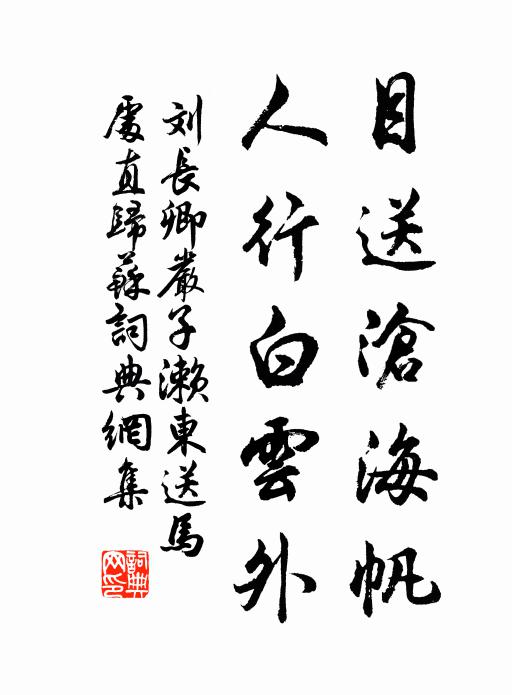 目送滄海帆
人行白雲外
刘長卿嚴子瀨東送馬
處直歸蘇詞典網集
詞典
网印